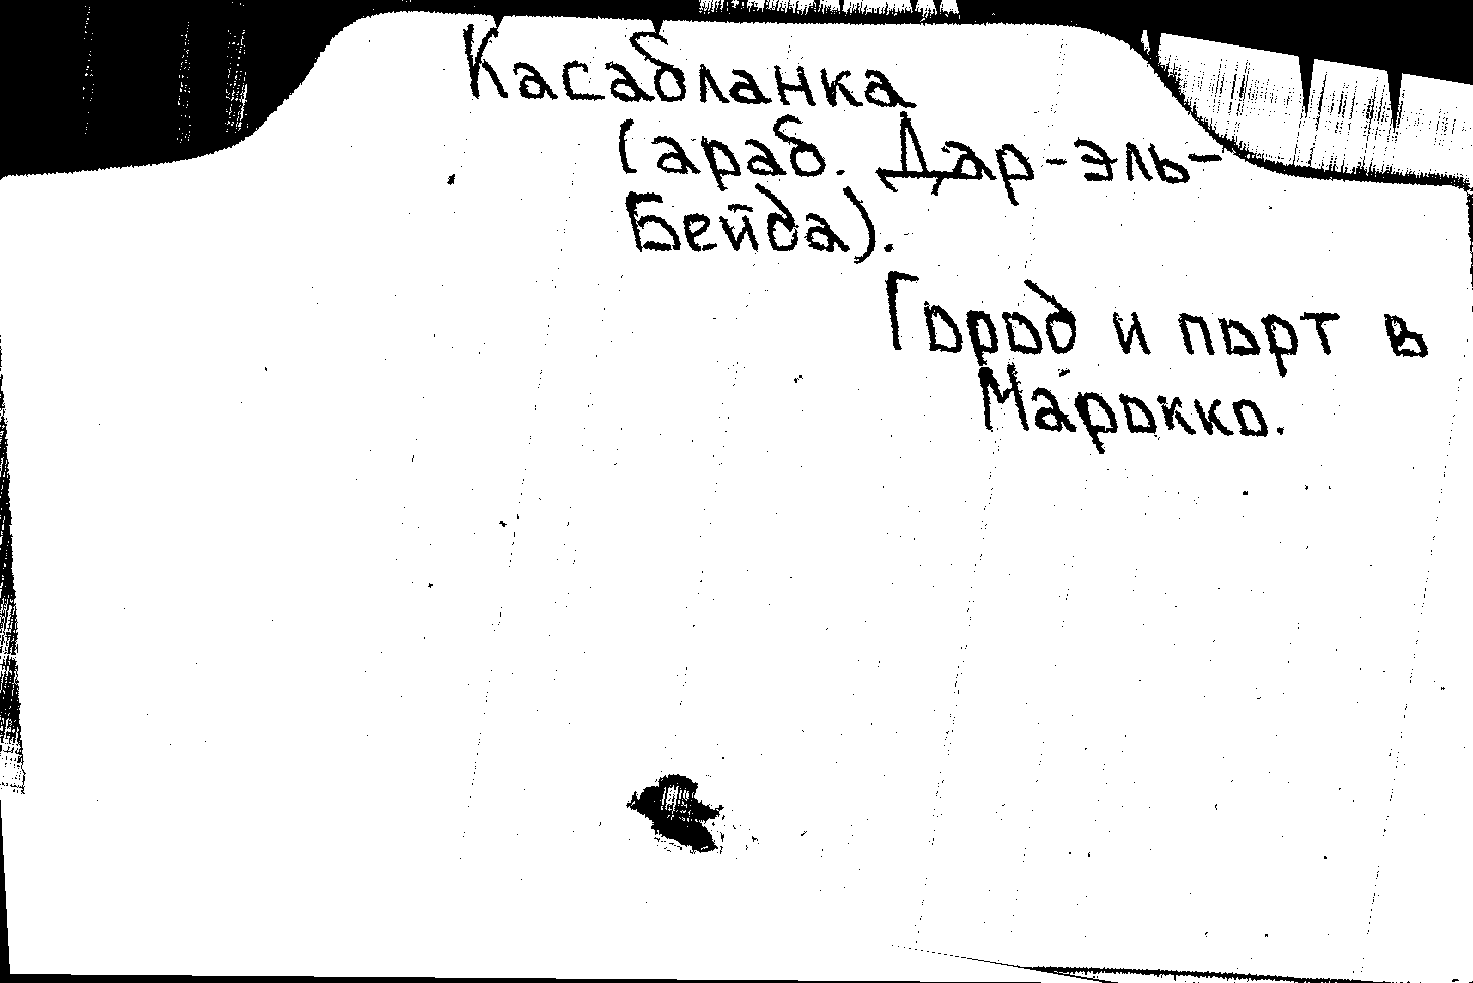 Касабланка
(араб. Дар-эль-
Бейда).
Город и порт в
Марокко.